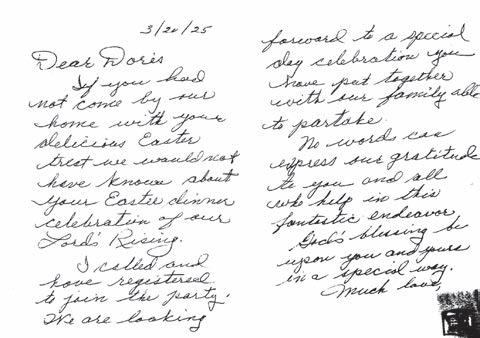 3/20/25
Dear Doris
If you had
not come by our
home with your
delicious Easter
treat we would not
have known about
your Easter dinner
celebration of our
Lord's Rising.
I called and
have registered
to join the party.
We are looking
forward to a special
day celebration you
have put together
with our family able
to partake.
No words can
express our gratitude
to you and all
who help in this
fantastic endeavor
God's blessing be
upon you and yours
in a special way.
Much love,